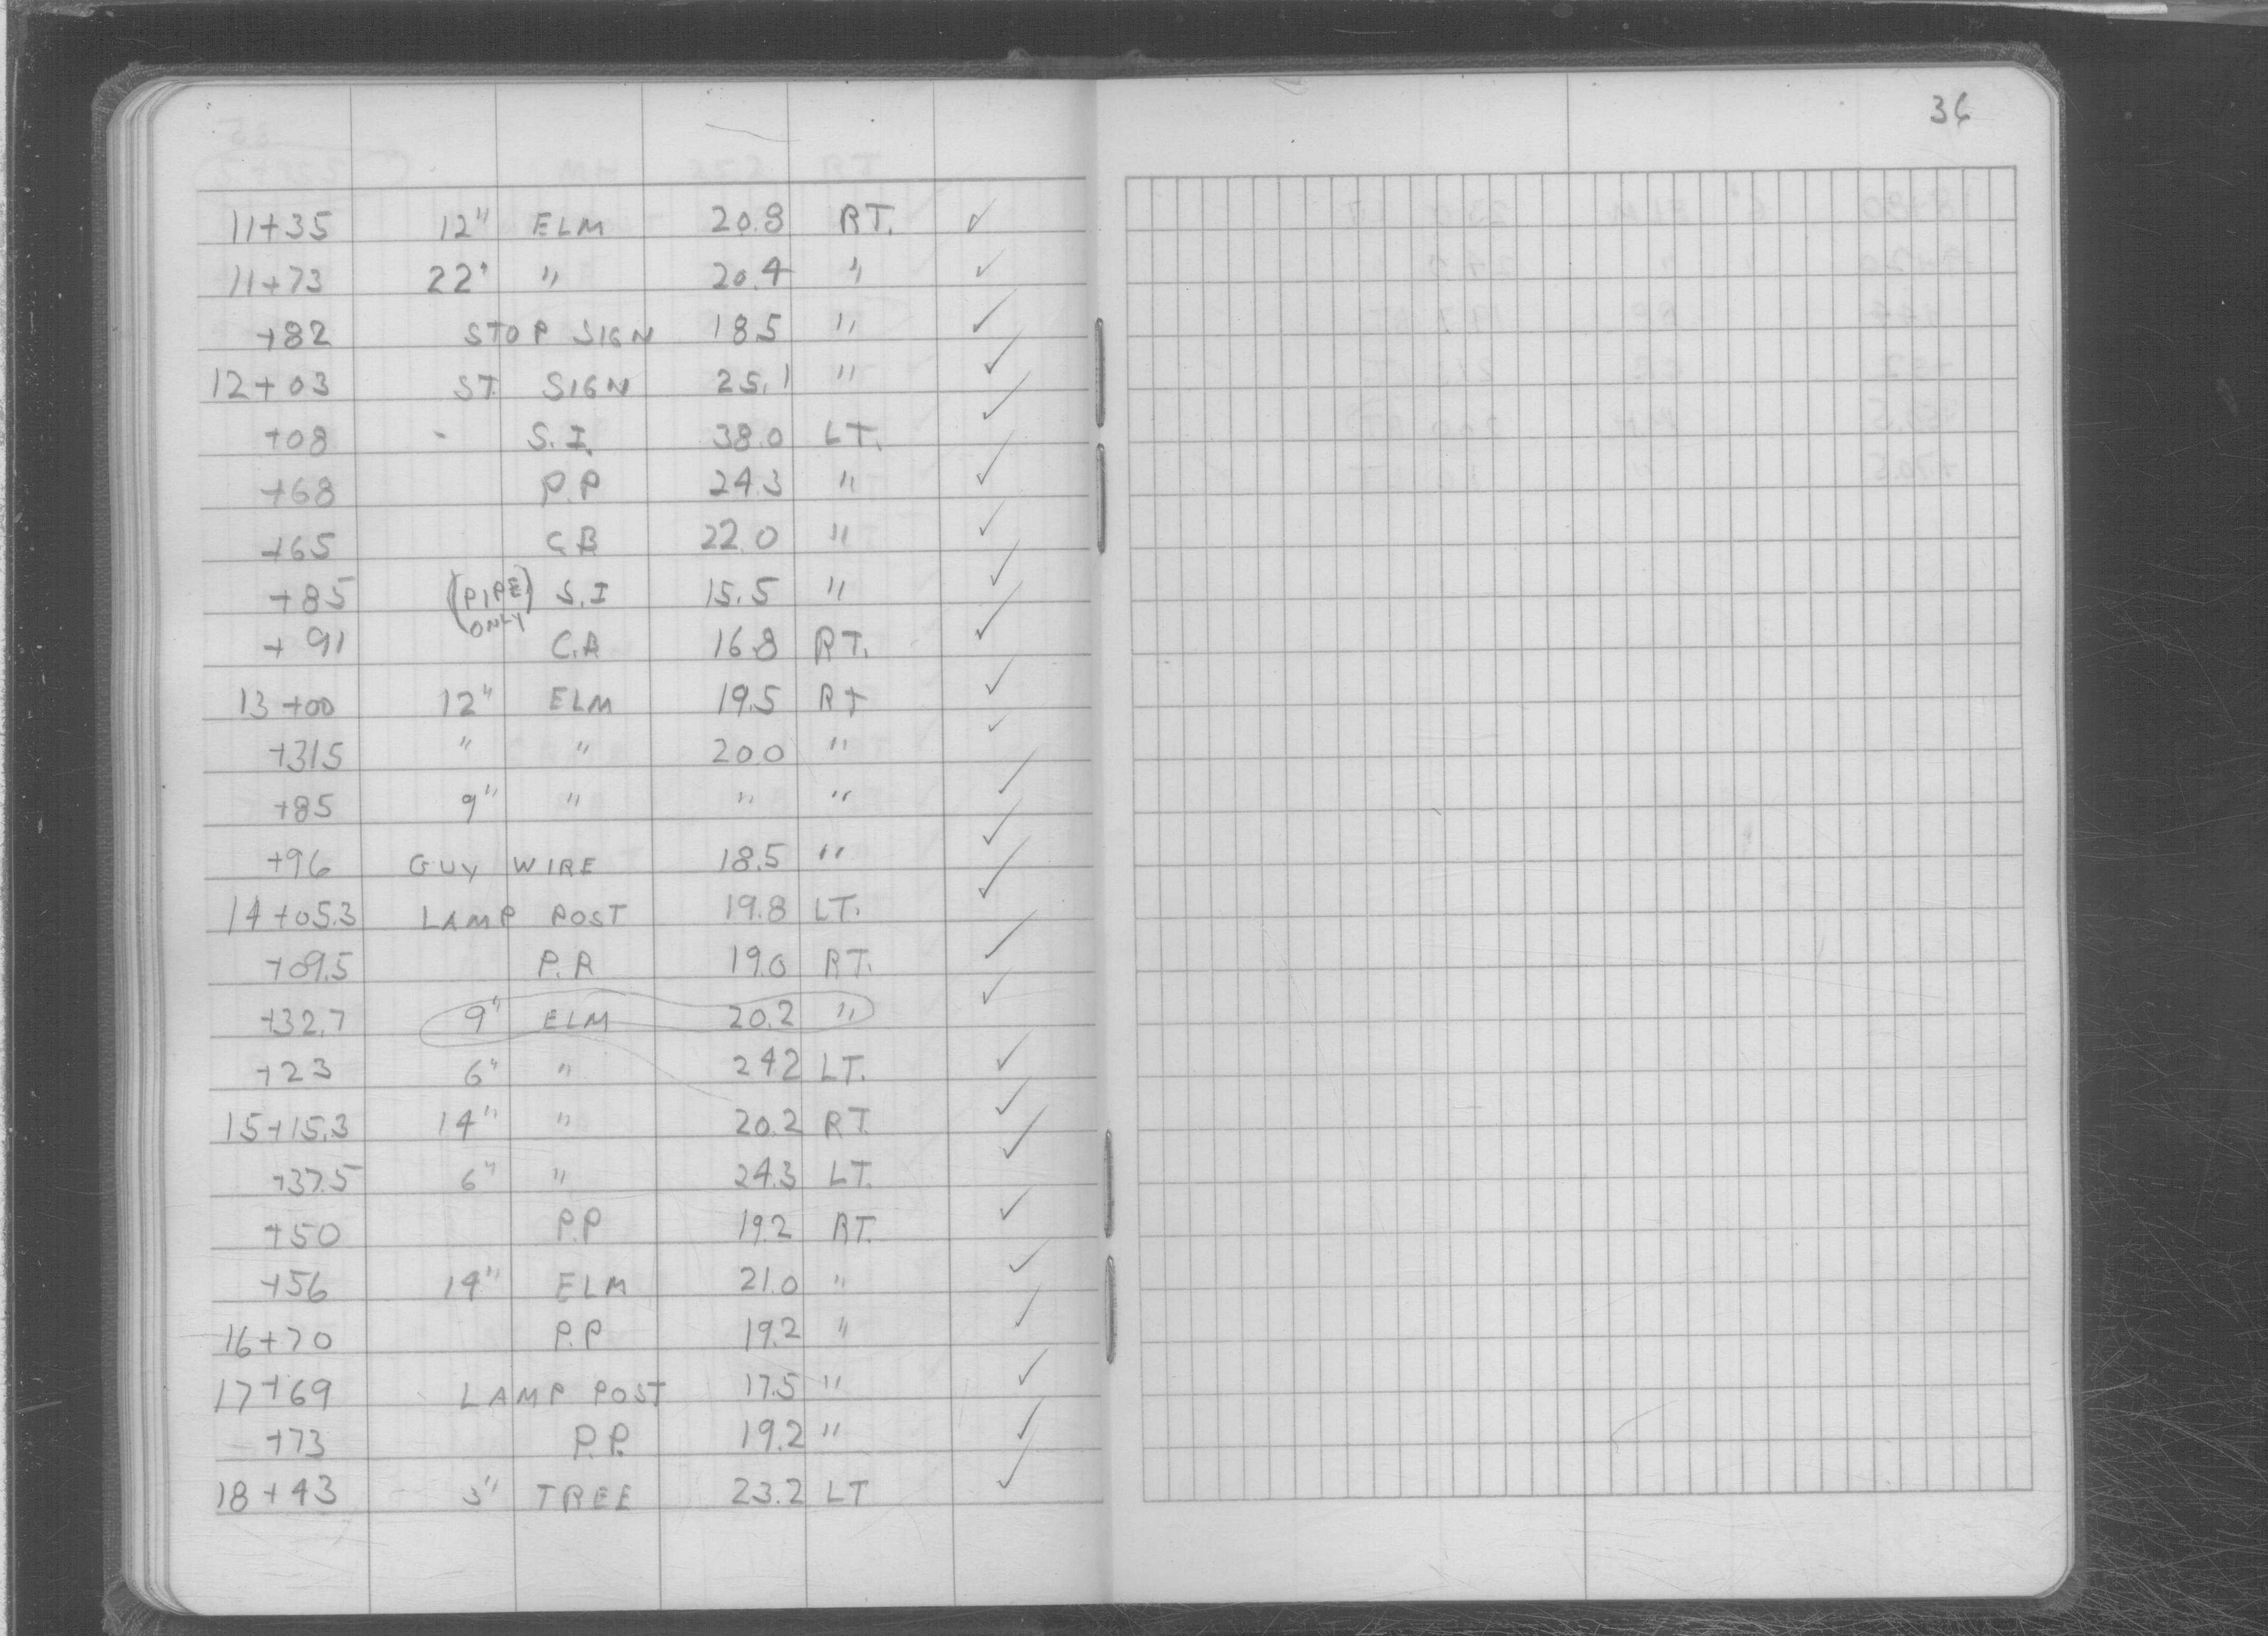 36
11+35 12" ELM 20.8 RT. ✓
11+73 22" " 20.4 " ✓
+82 STOP SIGN 18.5 " ✓
12+03 ST. SIGN 25.1 " ✓
+08 - S.I. 38.0 LT. ✓
+68 P.P 24.3 " ✓
+65 C.B 22.0 " ✓
+85 (PIPE ONLY) S.I 15.5 " ✓
+91 16.8 RT. ✓
13+00 12" ELM 19.5 RT ✓
+31.5 " " 20.0 " ✓
+85 9" " " " ✓
+96 GUY WIRE 18.5 " ✓
14+05.3 LAMP POST 19.8 LT. ✓
+09.5 P.P 19.0 RT. ✓
+32.7 9" ELM 20.2 " ✓
+23 6" " 24.2 LT. ✓
15+15.3 14" " 20.2 RT. ✓
+37.5 6" " 24.3 LT. ✓
+50 P.P 19.2 RT. ✓
+56 14" ELM 21.0 " ✓
16+70 P.P 19.2 " ✓
17+69 LAMP POST 17.5 " ✓
+73 P.P. 19.2 " ✓
18+43 3" TREE 23.2 LT ✓